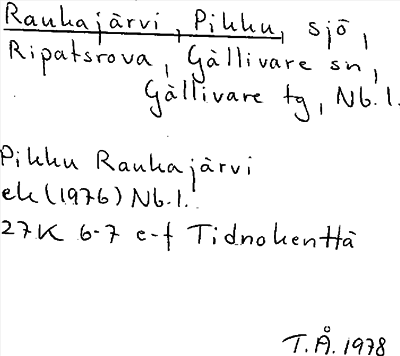 Rauhajärvi, Pikku, sjö,
Ripatsrova, Gällivare sn,
Gällivare tg, Nb.l.
Pikku Rauhajärvi
ek (1976) Nb.l.
27K 6-7 e-f Tidnokenttä
T.Å. 1978